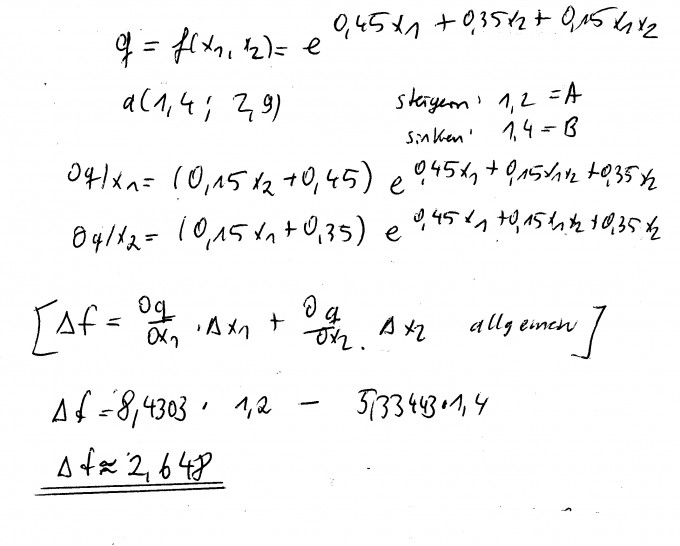 q = f(x₁, x₂) = e^(0,45x₁ + 0,35x₂ + 0,15x₁x₂)
a(1,4 ; 2,9) steigern: 1,2 = A
sinken: 1,4 = B
∂q/x₁ = (0,15x₂ + 0,45) e^(0,45x₁ + 0,15x₁x₂ + 0,35x₂)
∂q/x₂ = (0,15x₁ + 0,35) e^(0,45x₁ + 0,15x₁x₂ + 0,35x₂)
[Δf = ∂q/∂x₁ · Δx₁ + ∂q/∂x₂ · Δx₂ allgemein]
Δf = 8,4303 · 1,2 − 5,33443 · 1,4
Δf ≈ 2,648